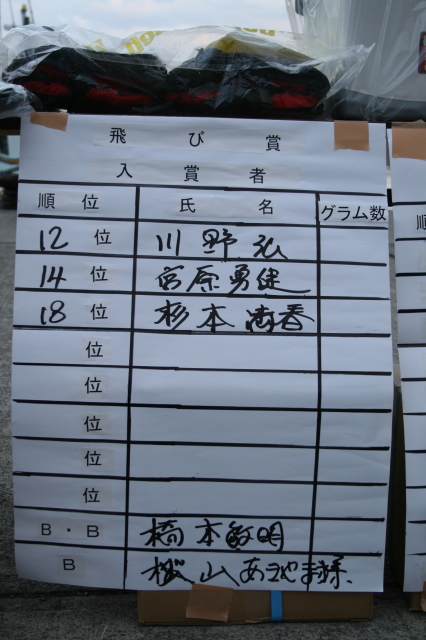 飛び賞
入賞者
順位 氏名 グラム数
12位 川野弘
14位 宮原勇健
18位 杉本満春
位
位
位
位
位
B・B 橋本敏明
B 桜山
順